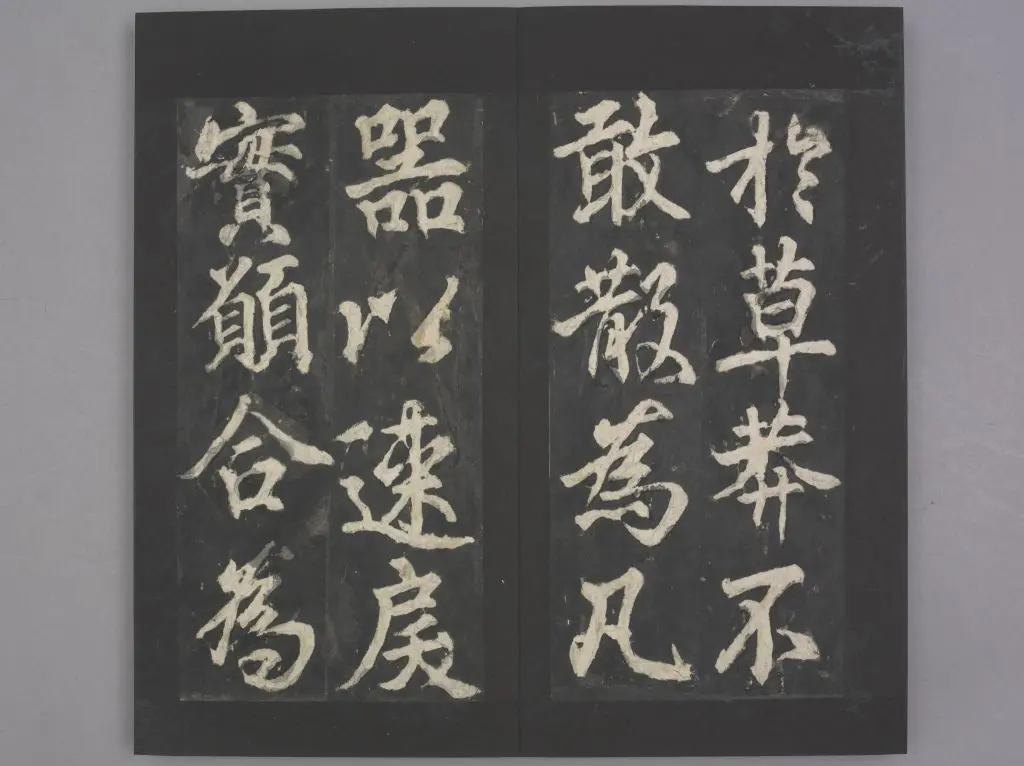 於草莽不
敢散為凡
器以速戾
實願合為